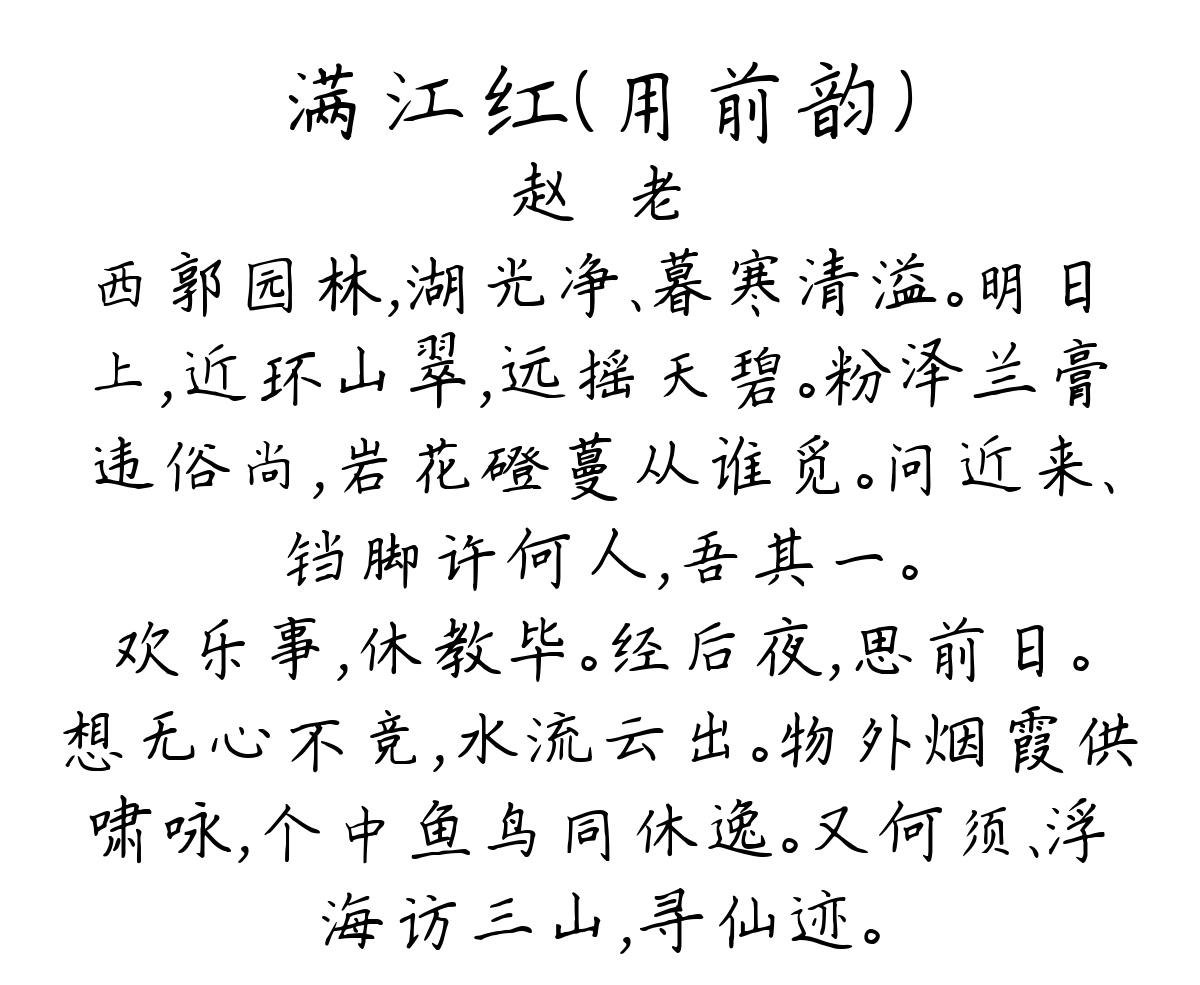 满江红(用前韵)
赵 老
西郭园林,湖光净、暮寒清溢。明日
上,近环山翠,远摇天碧。粉泽兰膏
违俗尚,岩花磴蔓从谁觅。问近来、
铛脚许何人,吾其一。
欢乐事,休教毕。经后夜,思前日。
想无心不竞,水流云出。物外烟霞供
啸咏,个中鱼鸟同休逸。又何须、浮
海访三山,寻仙迹。